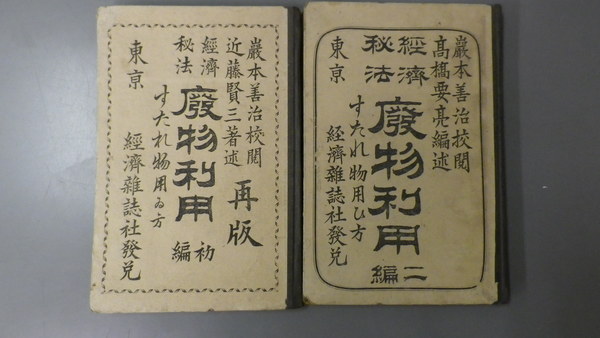 巌本善治校閲
高橋要亮編述
經濟
秘法
廢物利用
二編
すたれ物用ひ方
東京
經濟雜誌社發兌
巌本善治校閲
近藤賢三著述
再版
經濟
秘法
廢物利用
初編
すたれ物用ゐ方
東京
經濟雜誌社發兌